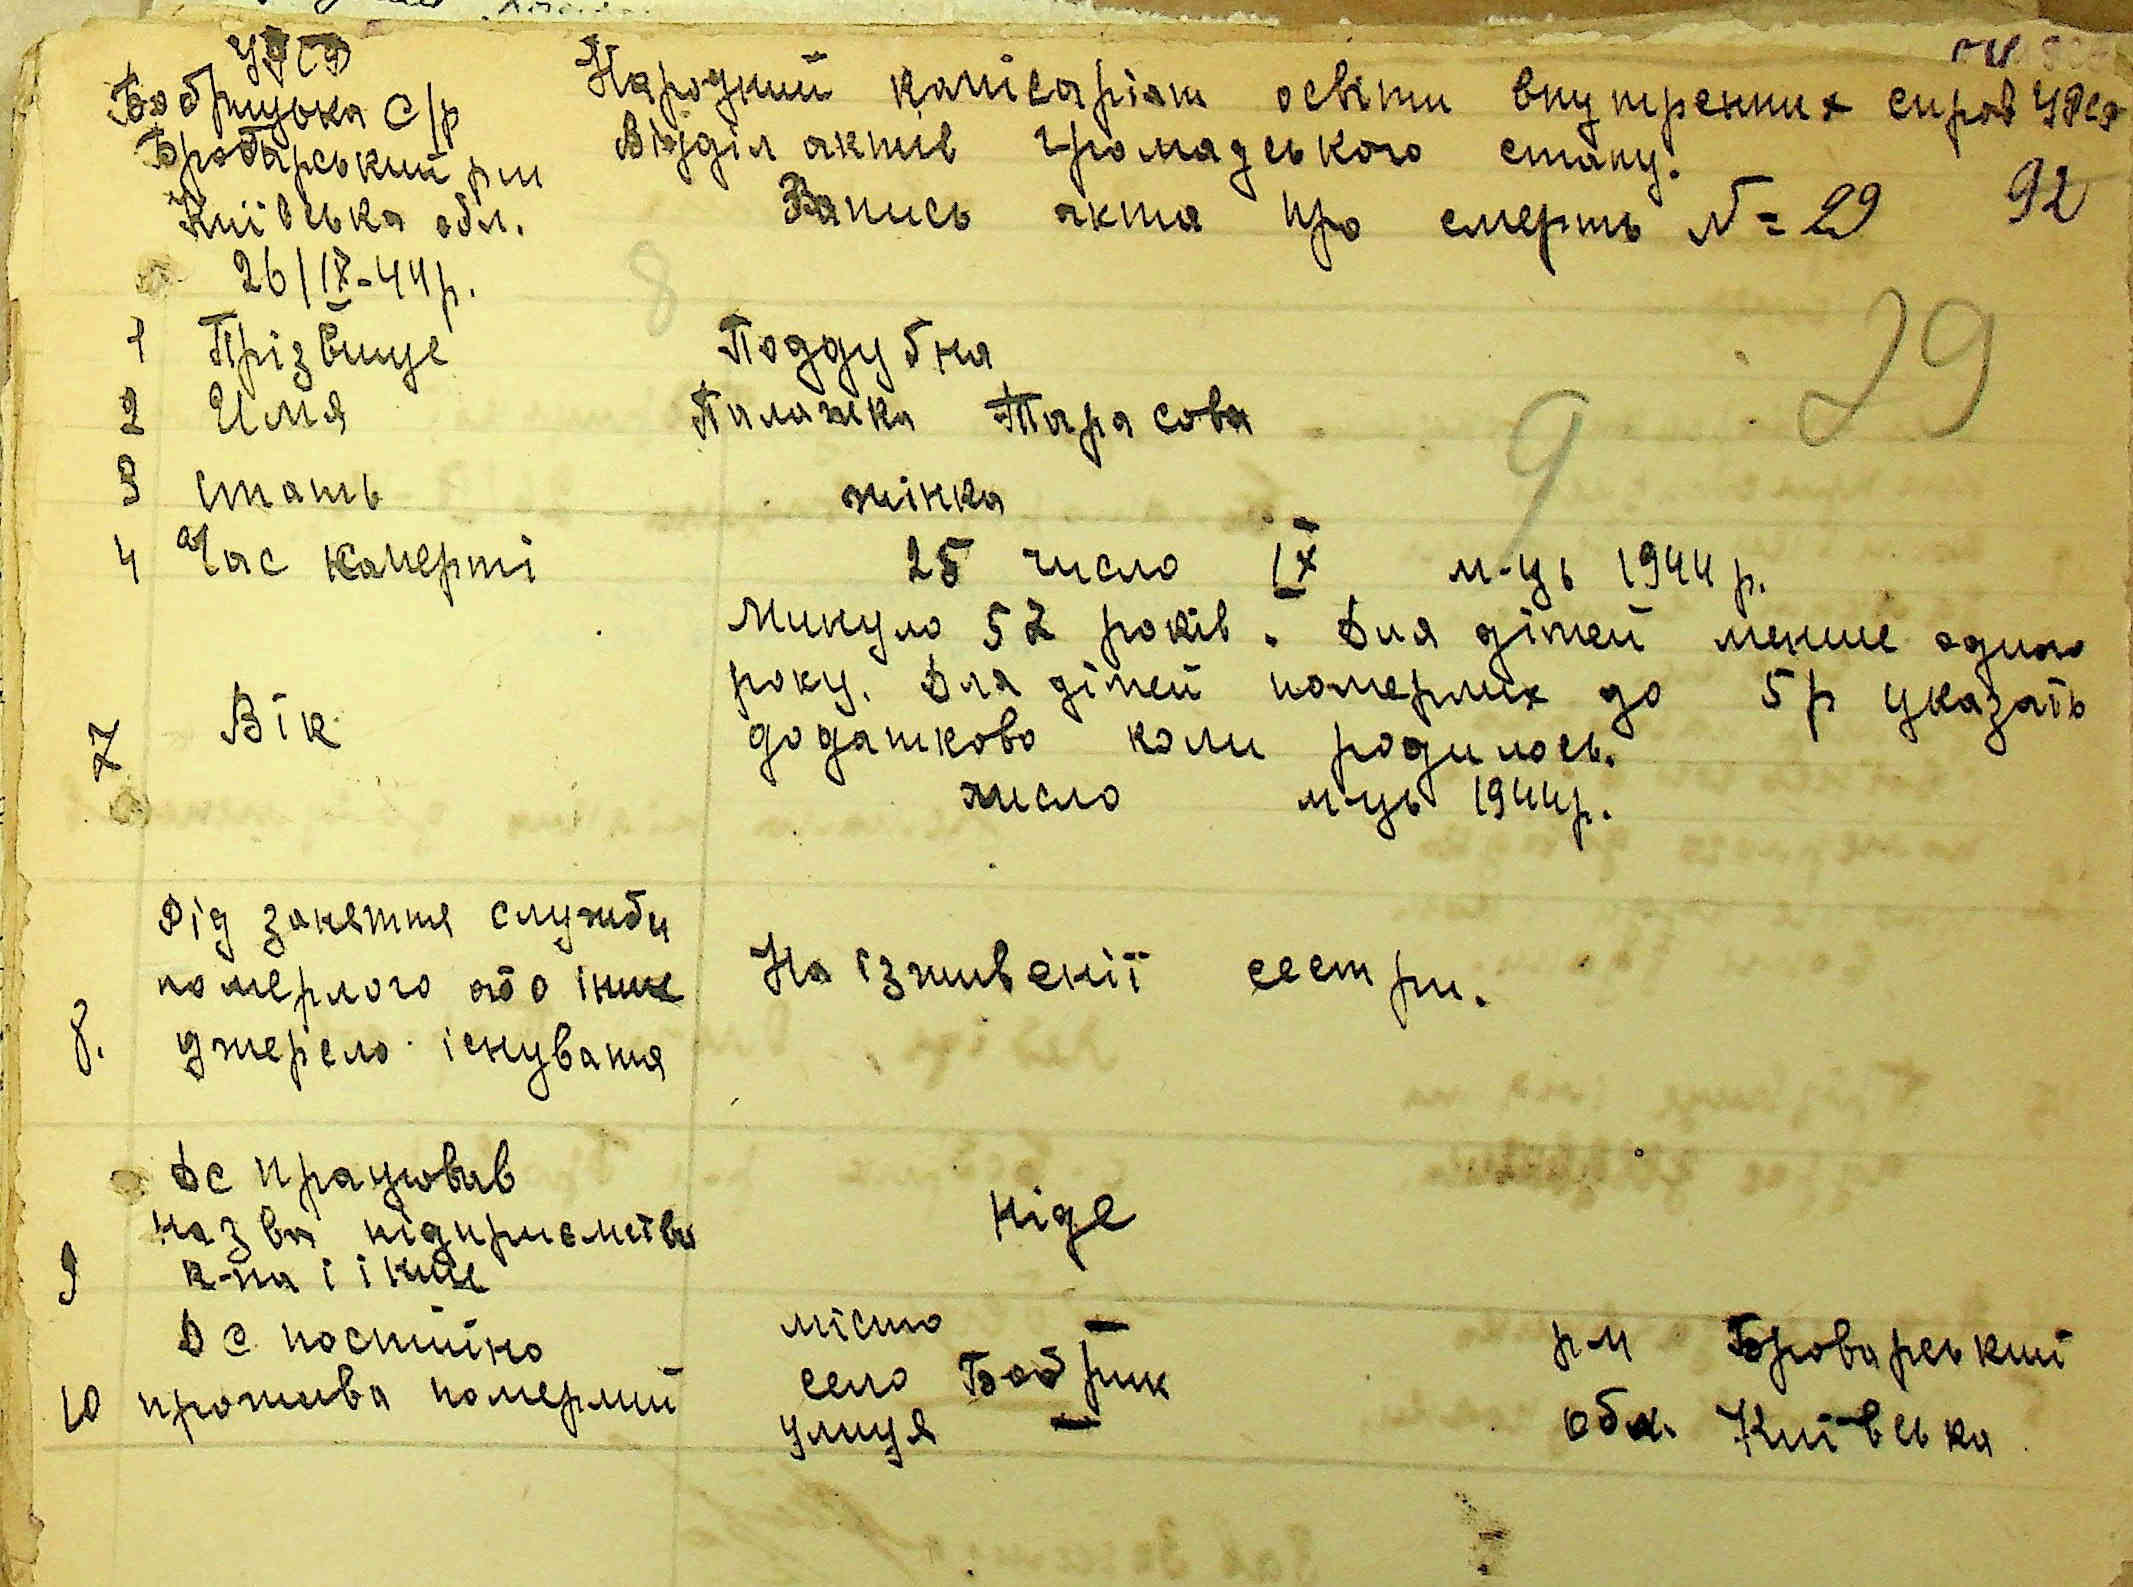 УРСР
Бобрицька С/р
Броварський р-н
Київська обл.
26/IX-44р.
Народний комісаріат освіти внутренних справ УРСР
Відділ актів громадського стану.
Запись акта про смерть №=29
92
29
8
9
1 Прізвище Поддубна
2 Имя Палажка Тарасова
3 стать жінка
4 Час смерті 25 число IX м-ць 1944 р.
Минуло 52 років. Для дітей менше одного
року. Для дітей померлих до 5р указать
7 Вік додатково коли родилось.
число м-ць 1944р.
Рід заняття служби
померлого або інше На іждивенії сестри.
8. джерело існування
Де працював
назва підприємства ніде
9 к-па і інше
Де постійно місто — р-н Броварський
10 прожива померлий село Бобрик обл. Київська
улиця —